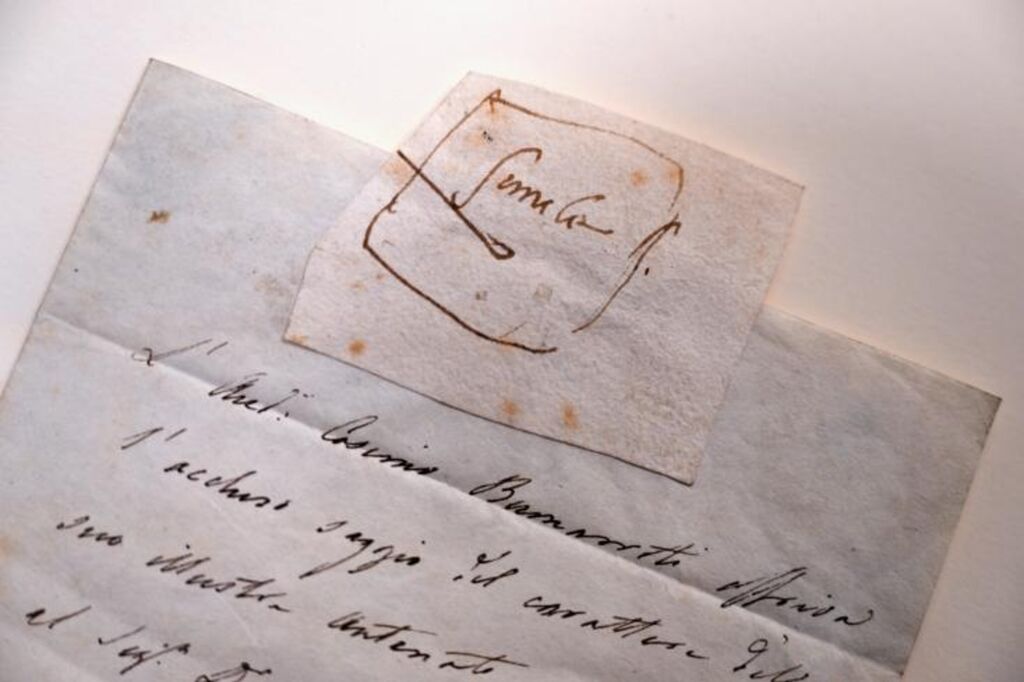 Simile
L' Avv.to Cosimo Buonarroti offriva
l'accluso saggio del carattere del
suo illustre antenato
al Sig.r